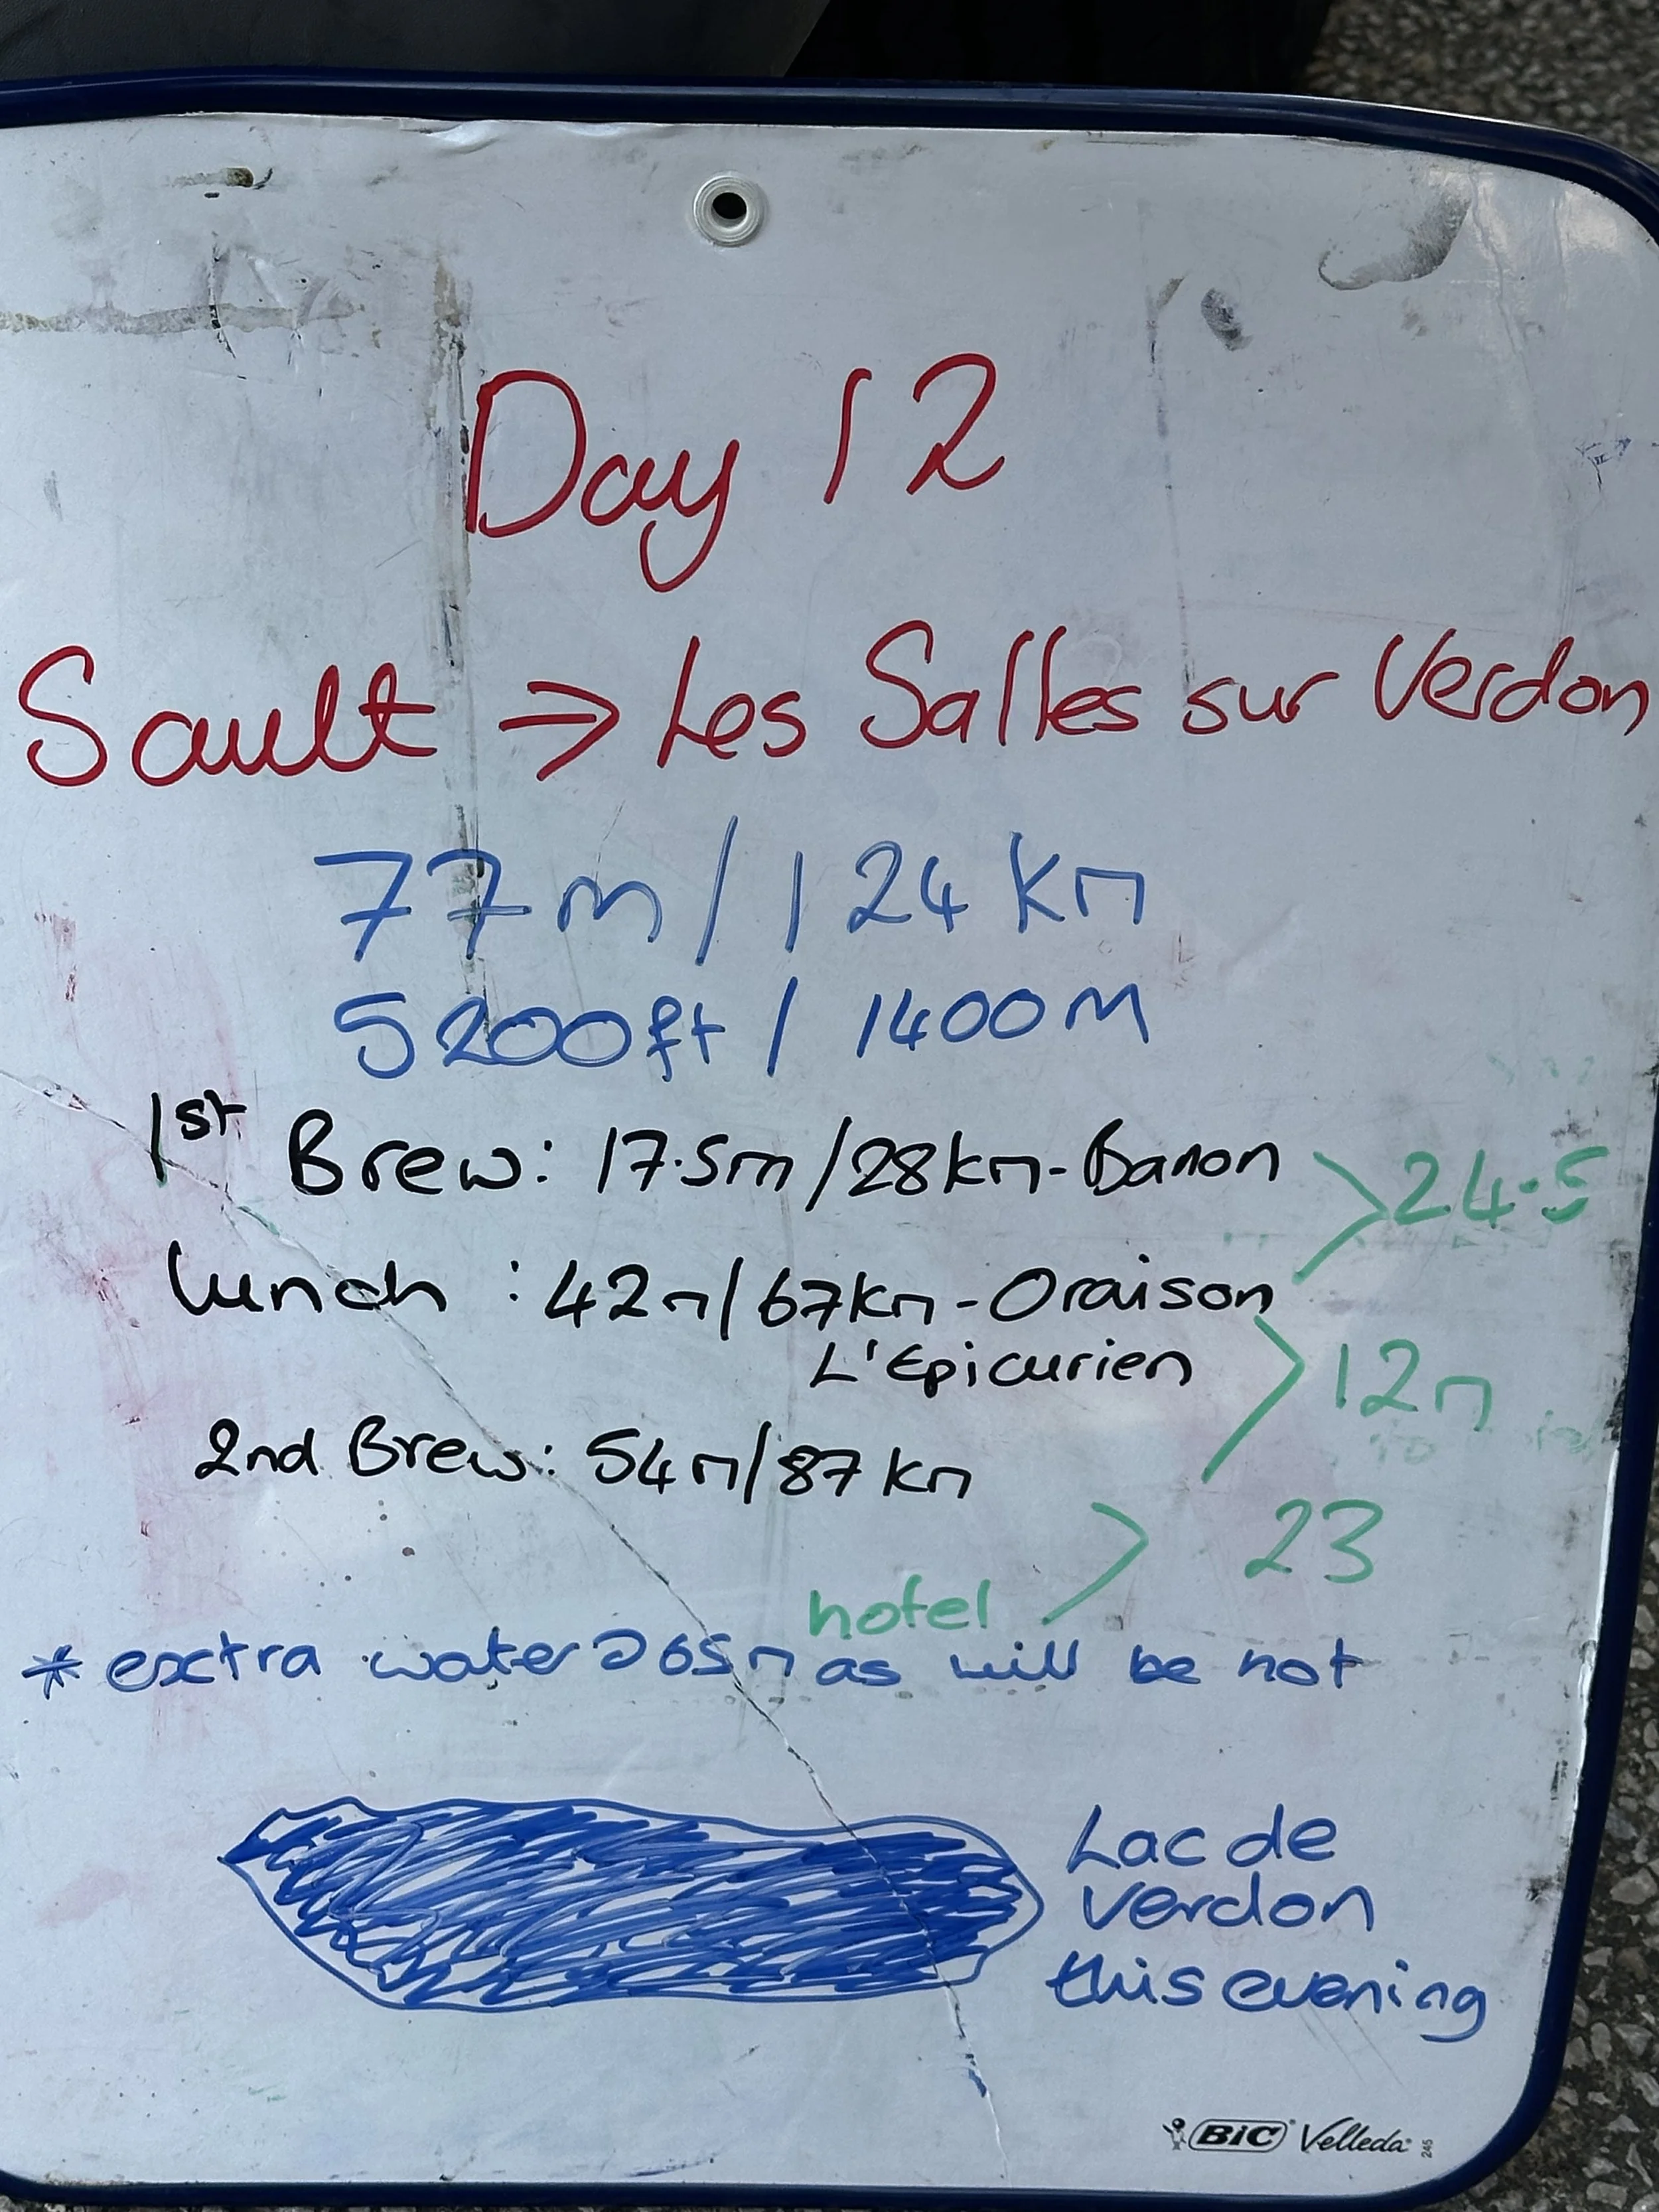 Day 12
Sault => Les Salles sur Verdon
77m / 124 km
5200ft / 1400M
1st Brew: 17.5m/28km - Banon > 24.5
Lunch : 42m/67km - Oraison
L'Epicurien > 12m
2nd Brew: 54m/87km
hotel > 23
* extra water @ 65m as will be hot
Lac de
verdon
this evening
BIC Velleda 245